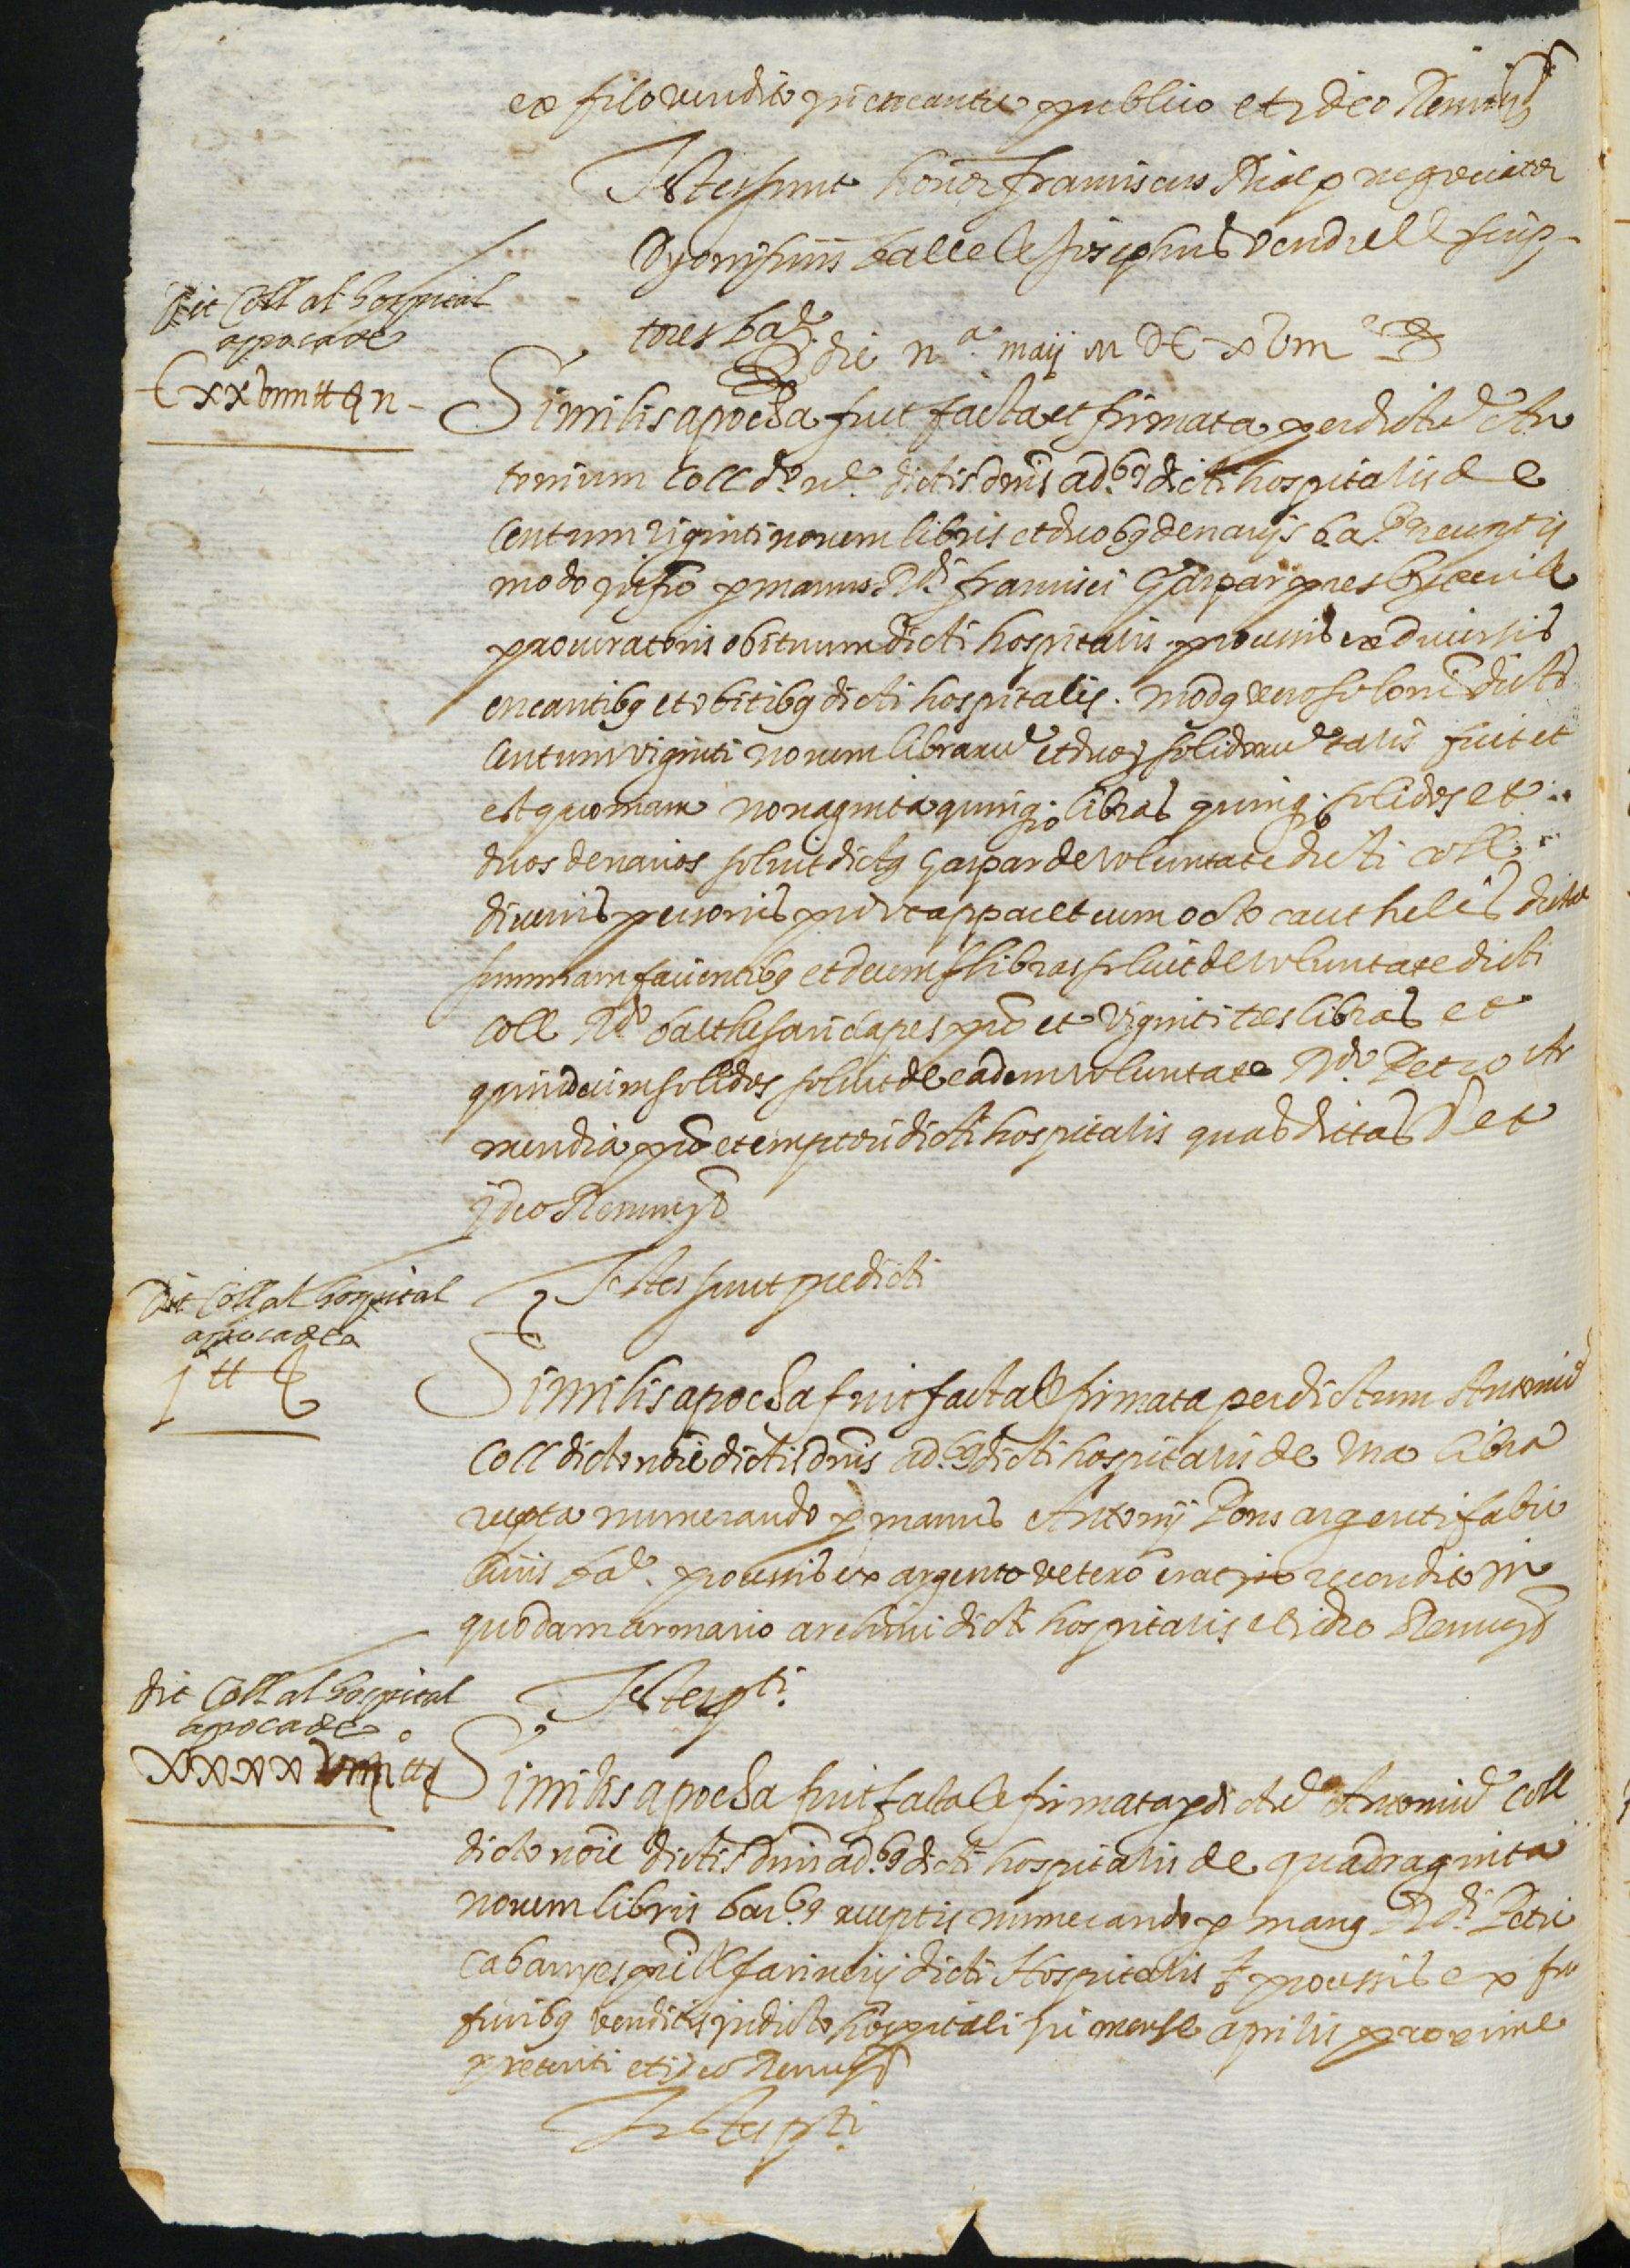 ex filo vendito in encantu publico et ideo Renun.
Testes sunt honor. franciscus Riac negociator
Dyonisius balle et Josephus vendrell scrip-
tores ba.e
die ii.a maij M DC xviii
dit Coll al hospital
apoca de
Cxxviiii tt ii
Similis apocha fuit facta et firmata per dictu An
tonium Coll d.o n.e dictis dnis ad.bq dicti hospitalis de
Centum viginti novem libris et duobq denarijs ba. receptis
modo infro p manus R.di francisci Gaspar presbyteri et
procuratoris obituum dicti hospitalis processis ex diversis
encantibq et obitibq dicti hospitalis. modq vero solonis dictar
Centum viginti novem libraru et duoȝ solidoru talis fuit et
est quoniam nonaginta quinq. libras quinq. solidos et
duos denarios solvit dictq Gaspar de voluntate dicti Coll
diversis personis prout appart cum octo cauthelis dictā
summam facientibq et decem libras solvit de voluntate dicti
Coll R.do balthesari clapes pro et viginti tres libras et
quindecim solidos solvit de eadem voluntate R.do Petro Ar
mendia pro et emptori dicti hospitalis quas dictas et
ideo Renun
Testes sunt predicti
Dit Coll al hospital
apoca de
j tt
Similis apocha fuit facta et firmata per dictum Antoniu
Coll dicto noie dictis dnis ad.bq dicti hospitalis de una libra
recepta numerando p manus Antonij Pons argentifabri
civis ba.e processis ex argento vetero erat recondito in
quodam armario archivi dicti hospitalis et ideo Renun
Testes p.ti
dit Coll al hospital
apoca de
xxxxviiii tt
Similis apocha fuit facta et firmata p dictu Antoniu Coll
dicto noie dictis dnis ad.bq dicti hospitalis de quadraginta
novem libris bar.bq receptis numerando p manq R.di Petri
Cabanyes pri et farinerij dicti Hospitalis processis ex fur
furibq venditis in dicto hospitali in mense aprilis proxime
preteriti et ideo Renun
Testes p.ti